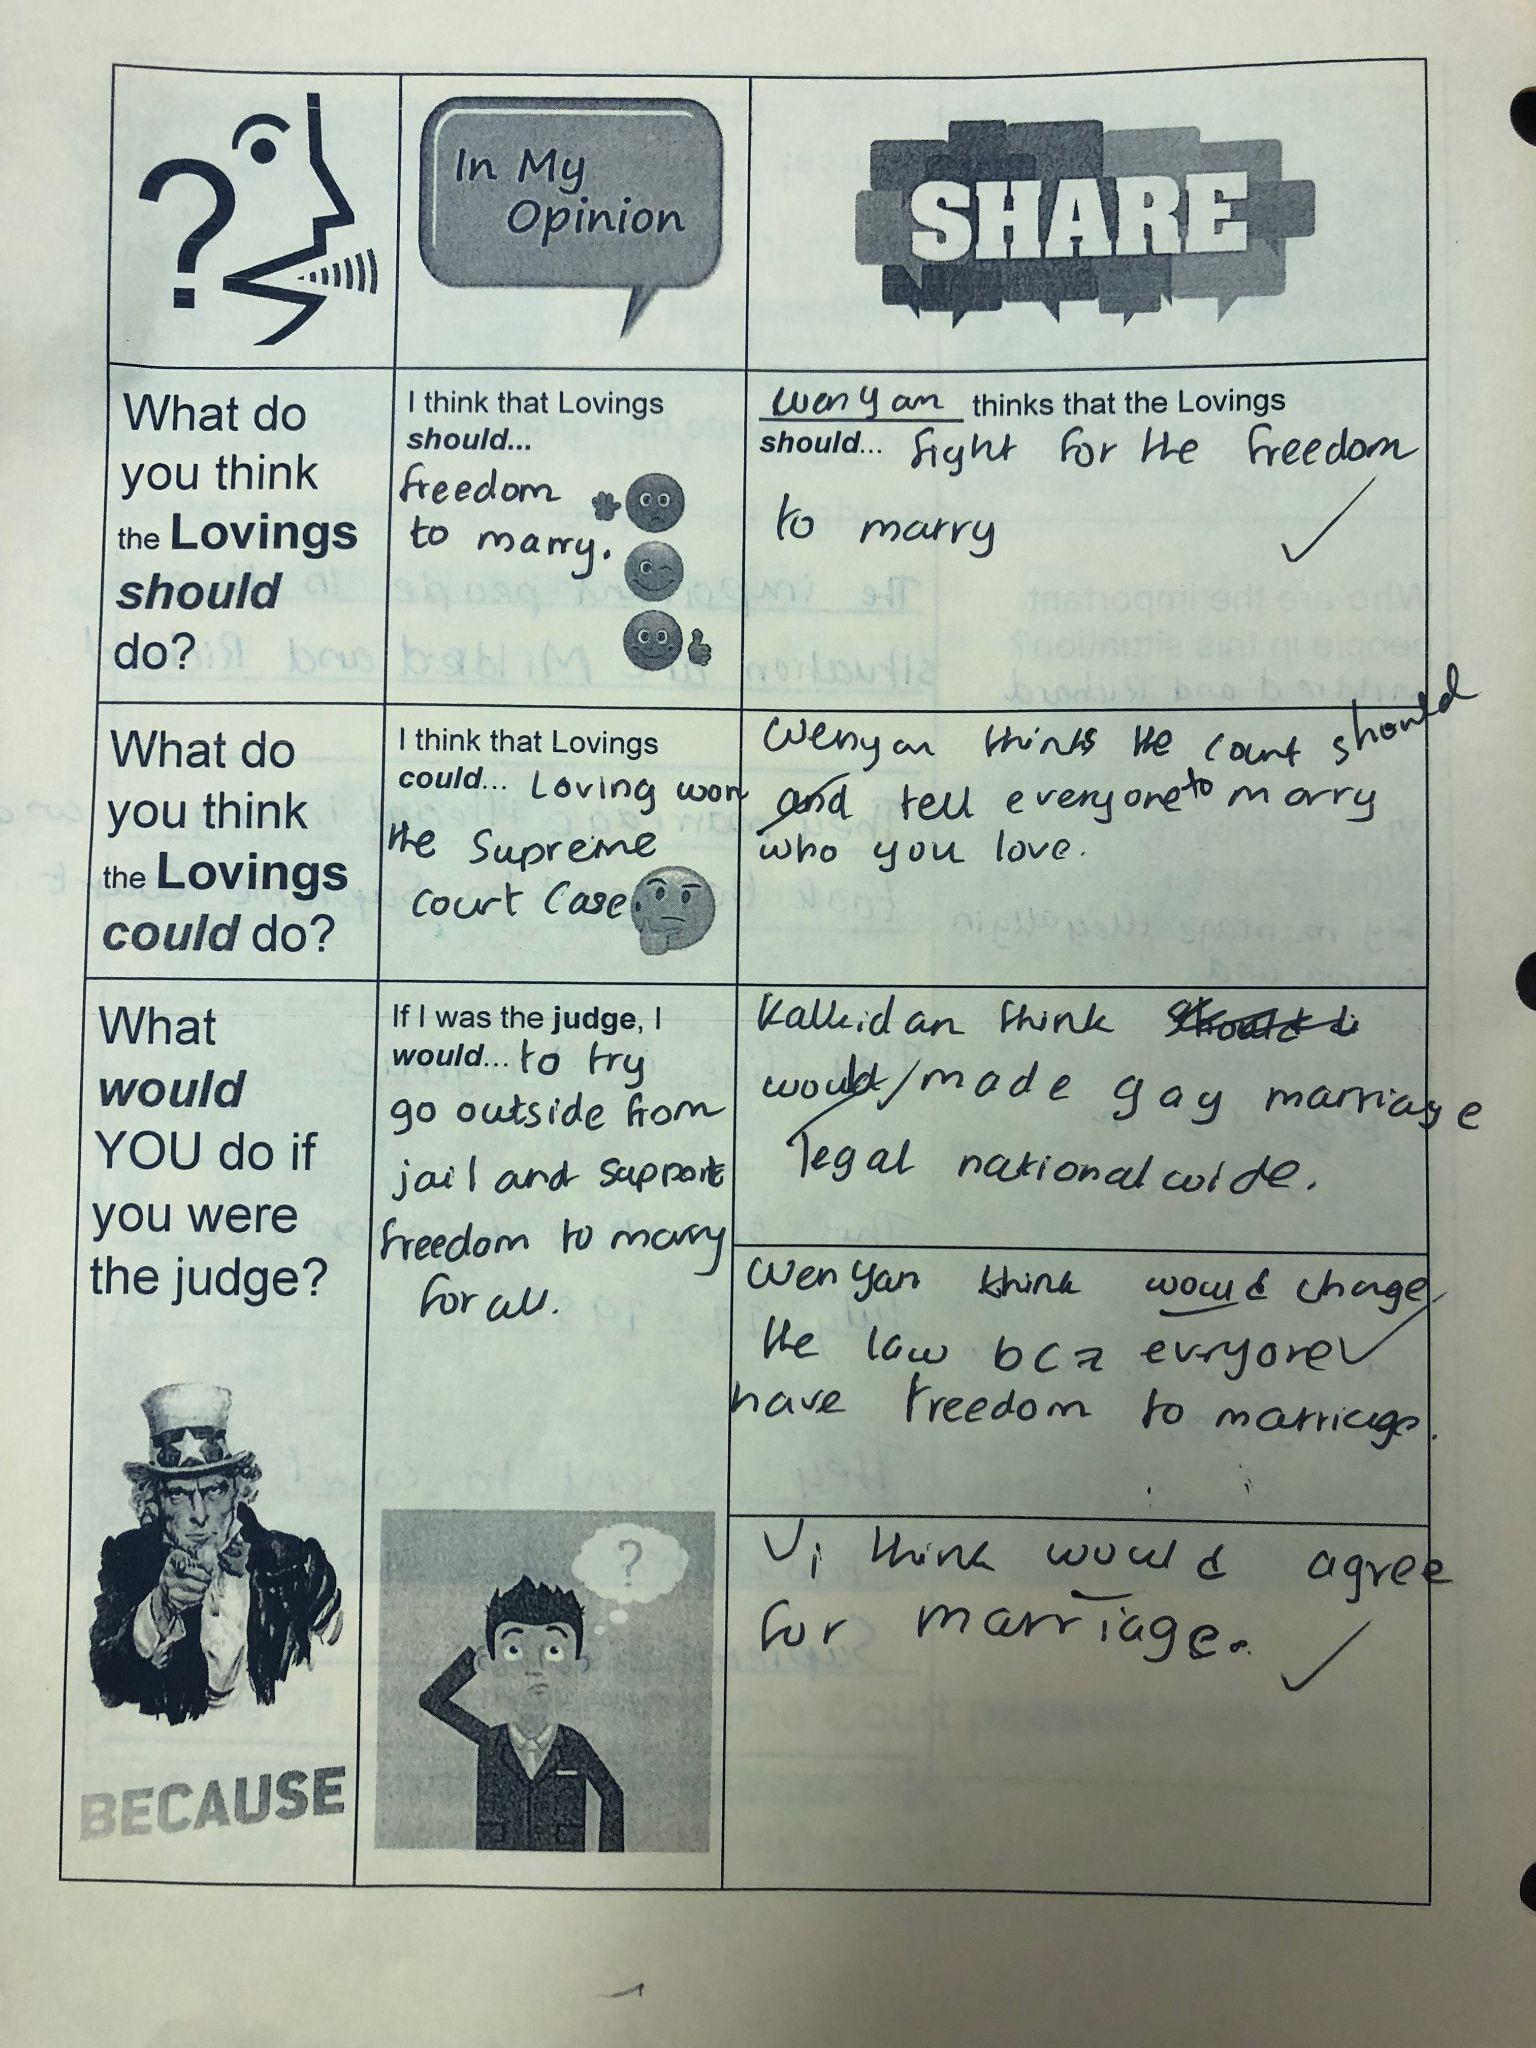 In My
Opinion
SHARE
What do
you think
the Lovings
should
do?
I think that Lovings
should...
freedom
to marry.
wenyan thinks that the Lovings
should... fight for the freedom
to marry
What do
you think
the Lovings
could do?
I think that Lovings
could... Loving won
the Supreme
court Case
Wenyan thinks the court should
and tell everyone to marry
who you love.
What
would
YOU do if
you were
the judge?
BECAUSE
If I was the judge, I
would... to try
go outside from
jail and support
freedom to marry
for all.
?
Kalkidan think
would made gay marriage
legal nationalwide.
Wenyan think would change
the law bcz evryone
have freedom to marriage.
Vi think would agree
for marriage.